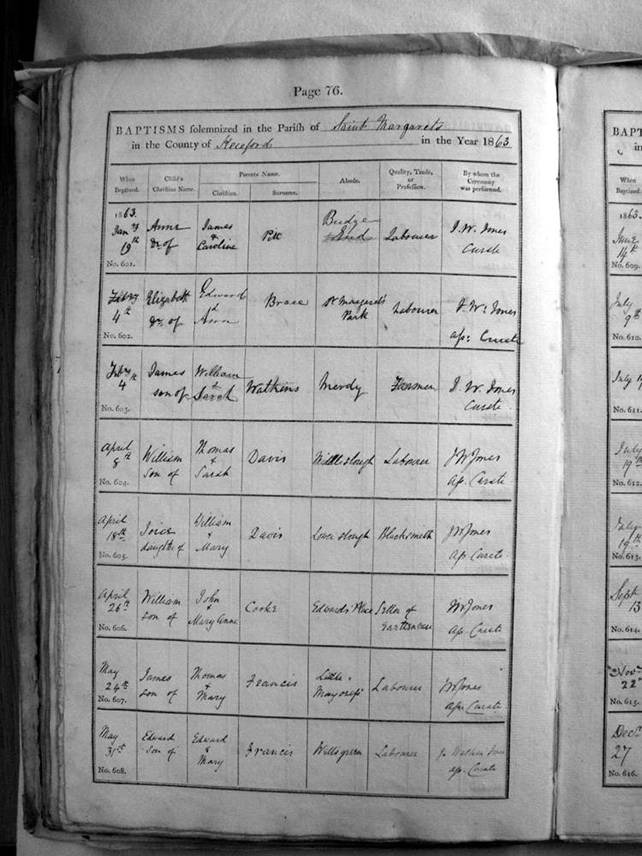 Page 76.
BAPTISMS solemnized in the Parish of Saint Margarets
in the County of Hereford in the Year 1863
When Baptized. Child's Christian Name. Parents Name. Christian. Surname. Abode. Quality, Trade, or Profession. By whom the Ceremony was performed.
1863.
Jany 19th Anne dr. of James & Caroline Pitt Labourer J. W. Jones Curate
No. 601.
Feby 4th Elizabeth dr. of Edward & Ann Brace St Margarets Park Labourer J. W. Jones ap: Curate
No. 602.
Feby 4th James son of William & Sarah Watkins Merdy Farmer J. W. Jones Curate
No. 603.
April 8th William Son of Thomas & Sarah Davis Middleslough Labourer JWJones ap. Curate
No. 604.
April 18th Joice daughter of William & Mary Davis Lower slough Blacksmith JWJones ap Curate
No. 605.
April 26th William son of John & Mary Anne Cooke Edwards Place Seller of Earthenware JWJones ap. Curate
No. 606.
May 24th James son of Thomas & Mary Francis Little Labourer JWJones ap. Curate
No. 607.
May 31st Edward Son of Edward & Mary Francis Wellsgreen Labourer Jones ap. Curate
No. 608.
BAPT
in
When
Baptized.
1863.
June
14th
No. 609.
July
9th
No. 610.
July
No. 611.
July
19th
No. 612.
July
19th
No. 613.
Sept
13
No. 614.
Novr
22
No. 615.
Decr
27
No. 616.